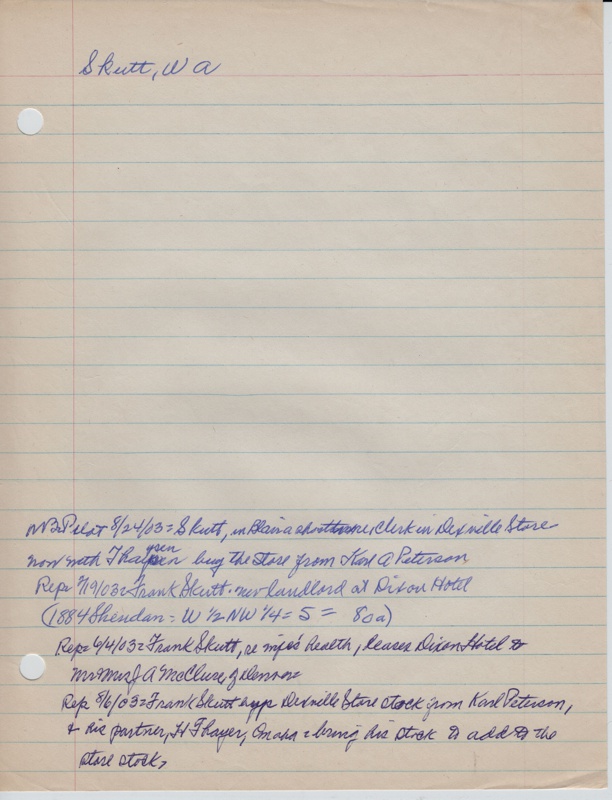 Skutt, W A
Pilot 8/24/03= Skutt, in Blair a short time, clerk in Dexville Store
now with buy the store from Karl A Peterson
Rep= /19/03= Frank Skutt - new landlord at Dixon Hotel
(1884 Sheridan= W 1/2 NW 1/4= 5 = 80a)
Rep= 6/4/03= Frank Skutt, re health, leases Dixon Hotel to
Mr Mrs J A McCluse of Denver
Rep 8/6/03= Frank Skutt Dexville Store stock from Karl Peterson,
& his partner, H Thayer, Omaha = bring his stock to add to the
store stock,